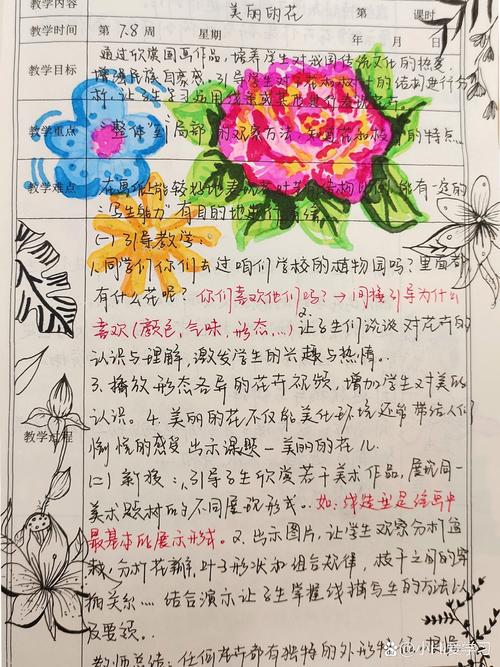 教学内容 美丽的花 第 课时
教学时间 第 7.8 周 星期 年 月 日
通过欣赏国画作品,培养学生对我国传统文化的热爱,
教学目标 增强民族自豪感,引导学生对花和枝叶的结构进行分
析,让学生学习运用线条或其他进行表现
教学重点 "整体"到"局部"的观察方法,知道花和枝的特点
教学难点 在画面上能轻松地表现 结构 能有一定的
"写生能力"有目的地进行
(一)引导教学:
1.同学们你们去过咱们学校的植物园吗?里面都
有什么花呢?你们喜欢他们吗?→间接引导为什么
喜欢(颜色,气味,形态...)2.让学生们说说对花卉的
认识与理解,激发学生的兴趣与热情。
3.播放形态各异的花卉视频,增加学生对美的
认识。4.美丽的花不仅能美化环境还常带给人们
教学过程 愉悦的感受出示课题—美丽的花儿
(二)新授:1.引导学生欣赏若干美术作品,展现同一
美术题材的不同展现形式。如:线造型是绘画中
最基本的展示形式。2.出示图片,让学生观察分析
分析花瓣,叶子形状和组合规律,枝干之间的穿
插关系....结合演示让学生掌握线描写生的方法以
及要领。
教师总结:任何花卉都有独特的外形特